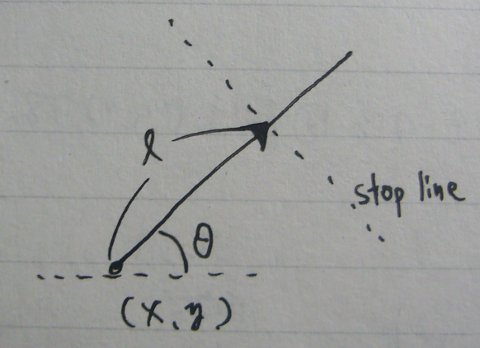 l
stop line
θ
(x, y)